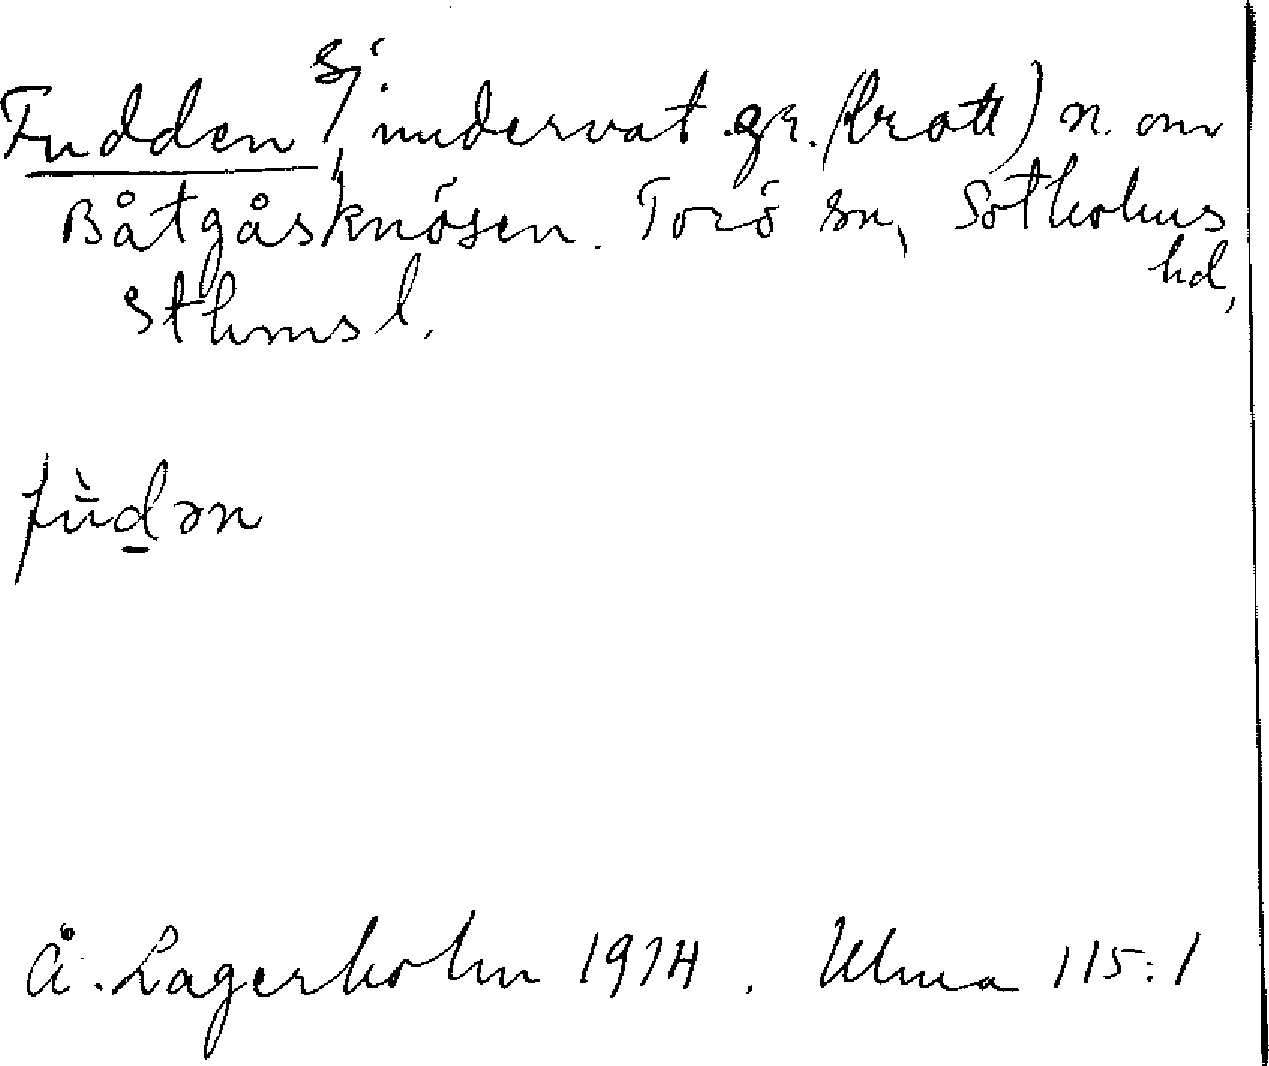 Fudden, sj. undervat.gr. (bratt) n. om
Båtgåsknösen. Torö sn, Sotholms
hd,
Sthms l.
fùdən
Å. Lagerholm 1914. Ulma 115:1